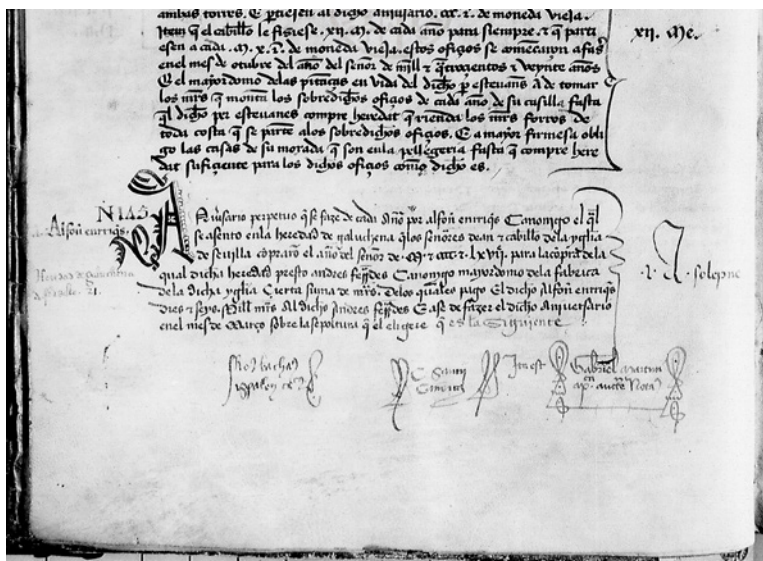 ambas torres. E ꝑtiesen al dicho aniuṡario. ccc. ī. de moneda vieja.
Item q̃ el cabillo le fisiese. xij. M. de cada año para siempre. ⁊ q̃ parti
esen a cada. M. x. ī. de moneda vieja. estos ofiços se comēçaron a fas̃
en el mes de otubre del año del señor de mjll ⁊ q̃trocientos ⁊ veynte años
E el mayordomo delas pitāças en vida del dicho ꝑ esteuanes a de tomar
los mr̃s q̃ montā los sobredichos ofiços de cada año de su casilla fasta
q̃l dicho per esteuanes compre heredat q̃ rienda los mr̃s forros de
toda costa q̃ se parte alos sobredichos ofiços. E a mayor firmesa obli
go las casas de su morada q̃ son enla pellegeria fasta q̃ compre here
dat sufiçente para los dichos ofiços com̃o dicho es.
xij. Me.
Alfon̄ enrriq̃s
A Niũsario perpetuo q̃ se faze de cada Año por alfon̄ enrriq̃s Canonigo el q̃l
se asento enla heredad de galuchena q̃ los señores dean ⁊ cabillo dela yglia
de seuilla cōpraro el año del señor de. M. ⁊ cccc. ⁊ lxvij. para la cōpra dela
qual dicha heredad presto andres ferrs̃des Canonigo mayordomo dela fabrica
dela dicha yglia Cierta suma de mr̃s. Delos quales pago El dicho Alfon̄ enrriq̃s
dies ⁊ seys. Mill mr̃s Al dicho Andres ferrs̃des E a se de fazer el dicho Aniuersario
en el mes de Março sobre la sepoltura q̃ el eligere q̃ es la siguiente
.j. A solepne
Ita est
Gabriel